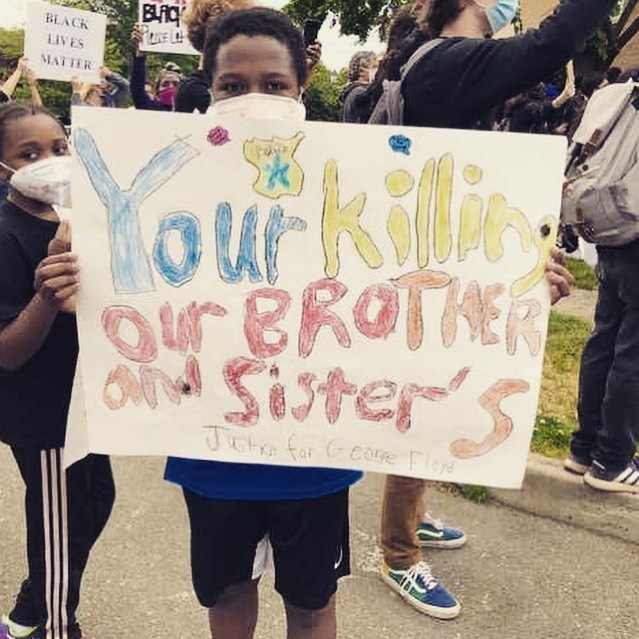 BLACK
LIVES
MATTER
BLACK
POLICE
Your killing
our BROTHER
and Sister's
Justice for George Floyd